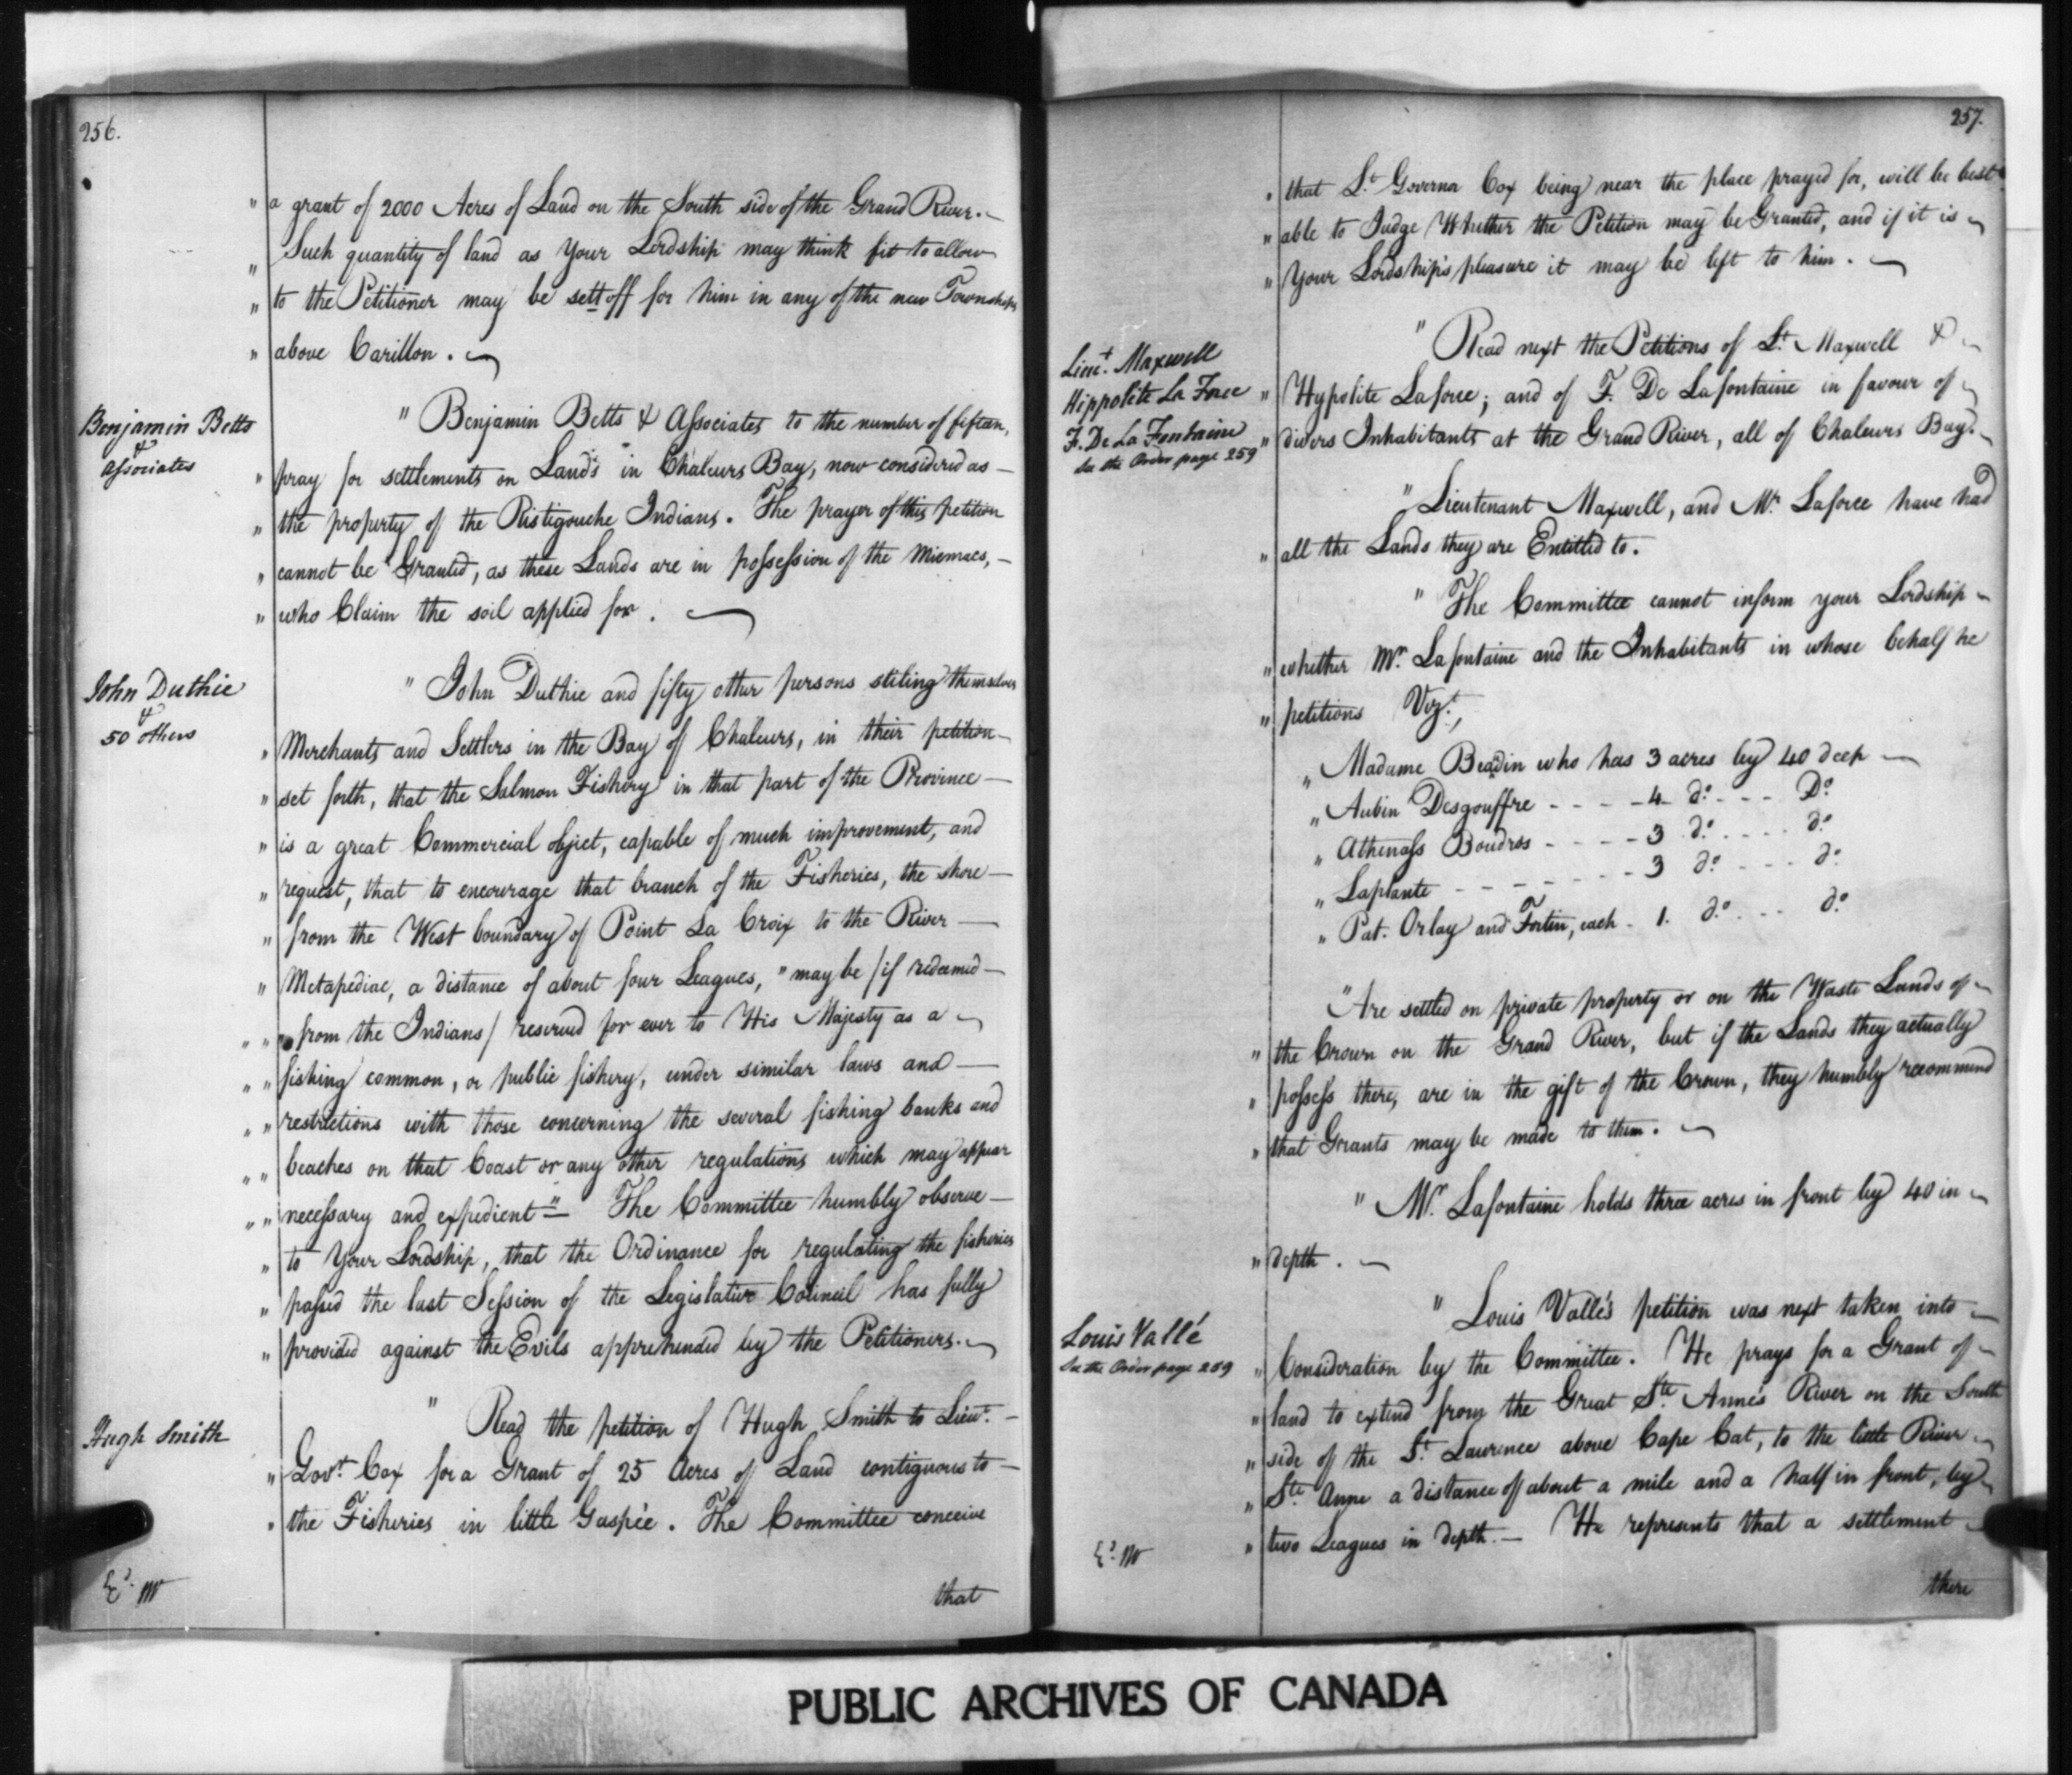 256.
" a grant of 2000 Acres of Land on the South side of the Grand River. —
" Such quantity of land as Your Lordship may think fit to allow
" to the Petitioner may be sett off for him in any of the new Townships
" above Carillon. —
Benjamin Betts
&
Associates
" Benjamin Betts & Associates to the number of fifteen,
" pray for settlements on Lands in Chaleurs Bay, now considered as —
" the property of the Ristigouche Indians. The prayer of this petition
" cannot be Granted, as these Lands are in possession of the Micmacs, —
" who Claim the soil applied for. —
John Duthie
&
50 others
" John Duthie and fifty other persons stiling themselves
" Merchants and Settlers in the Bay of Chaleurs, in their petition —
" set forth, that the Salmon Fishery in that part of the Province —
" is a great Commercial object, capable of much improvement, and
" request, that to encourage that branch of the Fisheries, the shore —
" from the West boundary of Point La Croix to the River —
" Metapediac, a distance of about four Leagues, "may be / if redeemed —
" " from the Indians / reserved for ever to His Majesty as a —
" " fishing common, or public fishery, under similar laws and —
" " restrictions with those concerning the several fishing banks and
" " beaches on that Coast or any other regulations which may appear
" " necessary and expedient" — The Committee humbly observe —
" to Your Lordship, that the Ordinance for regulating the fisheries
" passed the last Session of the Legislative Council has fully
" provided against the Evils apprehended by the Petitioners. —
Hugh Smith
" Read the petition of Hugh Smith to Lieut. —
" Govt. Cox for a Grant of 25 Acres of Land contiguous to —
" the Fisheries in little Gaspée. The Committee conceive
that
257.
" that Lt. Governor Cox being near the place prayed for, will be best
" able to Judge Whether the Petition may be Granted, and if it is —
" Your Lordship's pleasure it may be left to him. —
Lieut. Maxwell
Hippolite La Force
F. De La Fontaine
See the Order page 259
" Read next the Petitions of Lt. Maxwell & —
" Hypolite Laforce; and of F. De Lafontaine in favour of —
" divers Inhabitants at the Grand River, all of Chaleurs Bay. —
" Lieutenant Maxwell, and Mr. Laforce have had
" all the Lands they are Entitled to.
" The Committee cannot inform your Lordship —
" whether Mr. Lafontaine and the Inhabitants in whose behalf he
" petitions Vizt.,
" Madame Beadin who has 3 acres by 40 deep —
" Aubin Desgouffre - - - - 4 do. - - - Do.
" Athenass Boudros - - - - 3 do. - - - - do.
" Laplante - - - - - - - - 3 do. - - - do.
" Pat. Orlay and Fortin, each - 1. do. - - - do.
" Are settled on private property or on the Waste Lands of —
" the Crown on the Grand River, but if the Lands they actually
" possess there, are in the gift of the Crown, they humbly recommend
" that Grants may be made to them. —
" Mr. Lafontaine holds three acres in front by 40 in —
" depth. —
Louis Vallé
See the Order page 259
" Louis Vallé's petition was next taken into —
" Consideration by the Committee. He prays for a Grant of —
" land to extend from the Great Ste. Anne's River on the South
" side of the St. Lawrence above Cape Cat, to the little River —
" Ste. Anne a distance of about a mile and a half in front, by —
" two Leagues in depth. — He represents that a settlement —
there
PUBLIC ARCHIVES OF CANADA